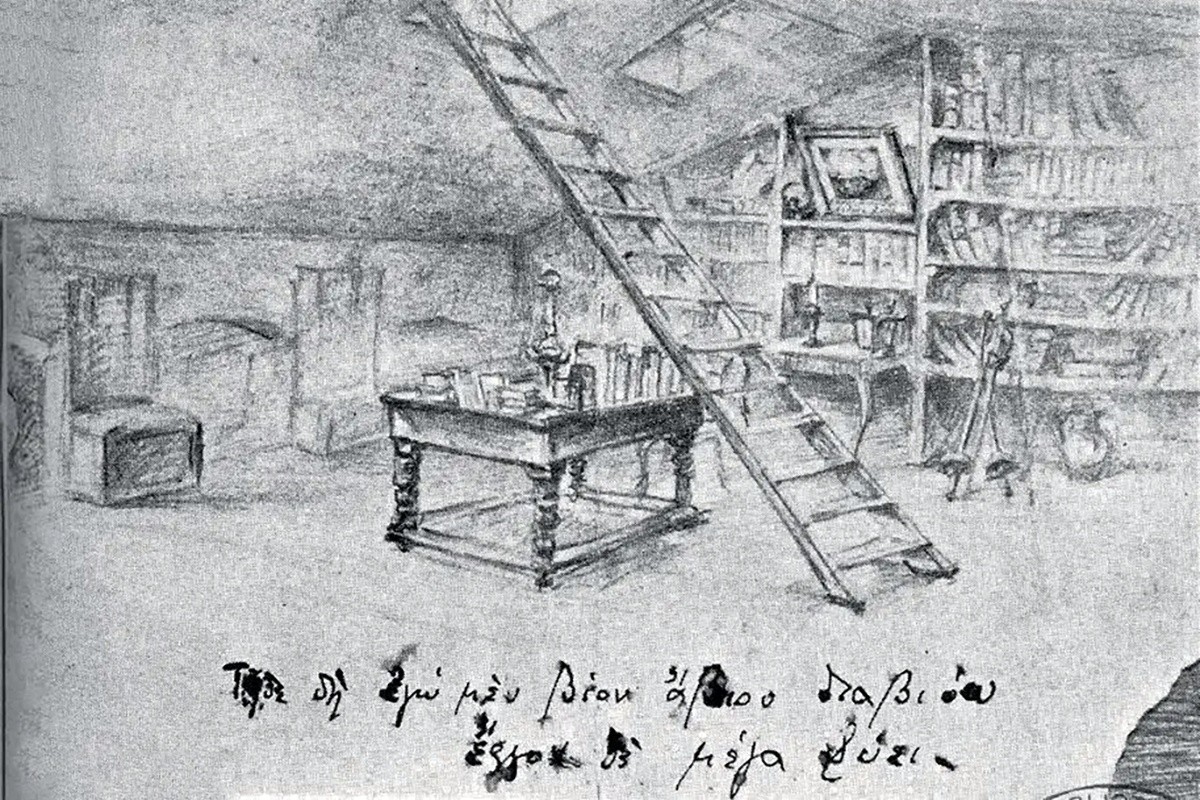 Τῇδε δὴ ἐγὼ μὲν βίον ἄβιον διαβιόω
ἔργον δὲ μέγα